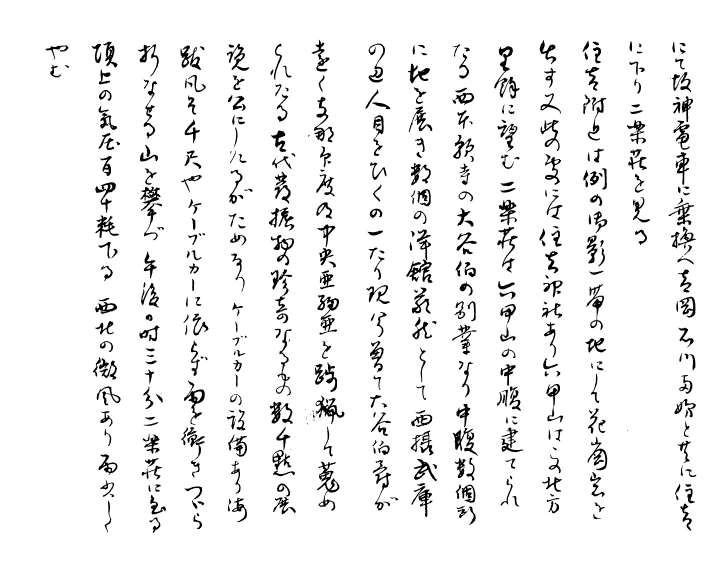 にて坂神電車に乗換へ吉岡石川両姉と共に住吉
に下り二楽荘を見る
住吉附近は例の御影一帯の地にして花崗岩を
出す又此の处には住吉神社あり六甲山は之北方
里餘に望む二楽荘は六甲山の中腹に建てられ
たる西本願寺の大谷伯の別業なり中腹数個所
に地を展き数個の洋館巍然として西摂武庫
の 人目をひくの一たり 曽て大谷伯爵が
遠く支那印度乃中央亜細亜を跋猟して蒐め
られたる古代発掘物の珍奇なるもの数千點の展
覧を公にしたるがためなり ケーブルカーの設備あり海
跋凡そ千尺やケーブルカーに依らず雲を衝きつづら
折なせる山を攀づ 午後 時三十分二楽荘に至る
頂上の氣圧百四十耗下る 西北の微風あり 雨少しく
やむ